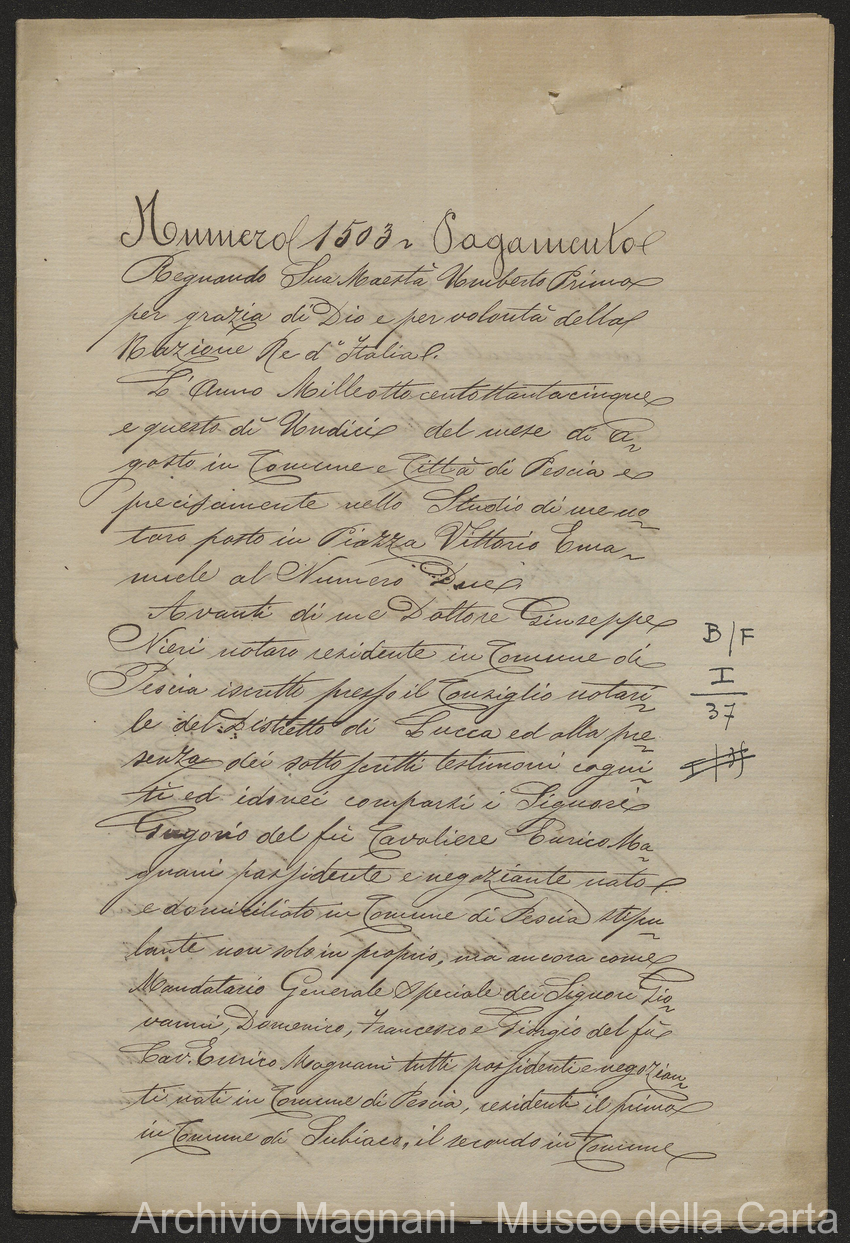 Numero 1503 Pagamento
Regnando Sua Maestà Umberto Primo
per grazia di Dio e per volontà della
Nazione Re d'Italia.
L'Anno Milleottocentottantacinque
e questo dì Undici del mese di A-
gosto in Comune e Città di Pescia e
precisamente nello Studio di me no-
taro posto in Piazza Vittorio Ema-
nuele al Numero Due.
Avanti di me Dottore Giuseppe
Nieri notaro residente in Comune di
Pescia iscritto presso il Consiglio notari-
le del Distretto di Lucca ed alla pre-
senza dei sottoscritti testimoni cogni-
ti ed idonei comparsi i Signori
del fù Cavaliere Enrico Ma-
gnani possidente e negoziante nato
e domiciliato in Comune di Pescia stipu-
lante non solo in proprio, ma ancora come
Mandatario Generale Speciale dei Signori Gio-
vanni, Domenico, Francesco e Giorgio del fù
Cav. Enrico Magnani tutti possidenti e negozian-
ti nati in Comune di Pescia, residenti il primo
in Comune di Subiaco, il secondo in Comune
B/F
I
37
Archivio Magnani - Museo della Carta